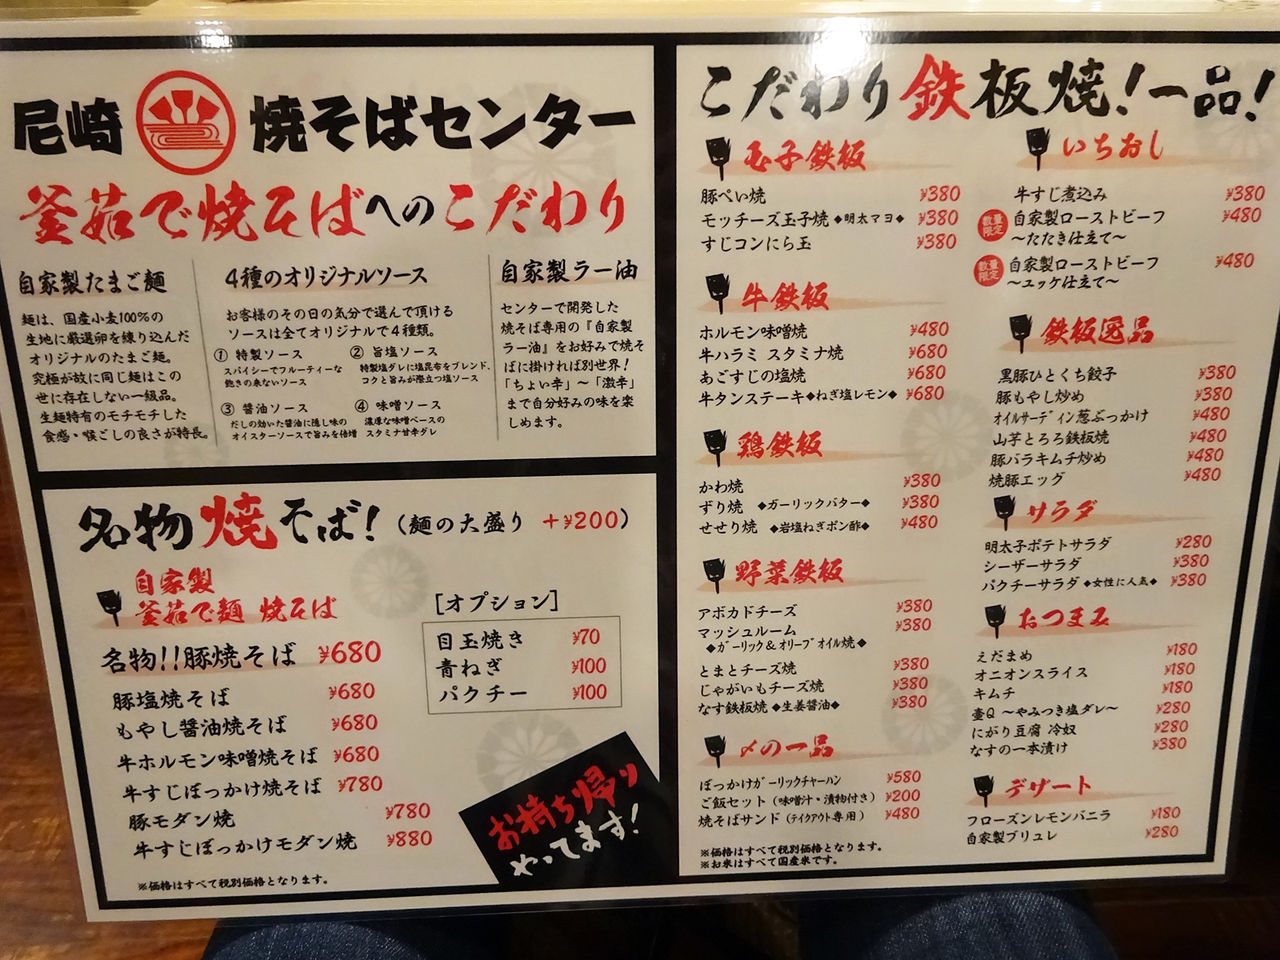 尼崎 焼そばセンター
釜茹で焼そばへのこだわり
自家製たまご麺
麺は、国産小麦100%の
生地に厳選卵を練り込んだ
オリジナルのたまご麺。
究極が故に同じ麺はこの
世に存在しない一級品。
生麺特有のモチモチした
食感・喉ごしの良さが特長。
4種のオリジナルソース
お客様のその日の気分で選んで頂ける
ソースは全てオリジナルで4種類。
① 特製ソース
スパイシーでフルーティーな
飽きの来ないソース
② 旨塩ソース
特製塩ダレに塩昆布をブレンド、
コクと旨みが際立つ塩ソース
③ 醤油ソース
だしの効いた醤油に隠し味の
オイスターソースで旨みを倍増
④ 味噌ソース
濃厚な味噌ベースの
スタミナ甘辛ダレ
自家製ラー油
センターで開発した
焼そば専用の『自家製
ラー油』をお好みで焼そ
ばに掛ければ別世界!
「ちょい辛」~「激辛」
まで自分好みの味を楽
しめます。
名物焼そば!(麺の大盛り +¥200)
自家製
釜茹で麺 焼そば
名物!!豚焼そば ¥680
豚塩焼そば ¥680
もやし醤油焼そば ¥680
牛ホルモン味噌焼そば ¥680
牛すじぼっかけ焼そば ¥780
豚モダン焼 ¥780
牛すじぼっかけモダン焼 ¥880
※価格はすべて税別価格となります。
[オプション]
目玉焼き ¥70
青ねぎ ¥100
パクチー ¥100
お持ち帰り
やってます!
こだわり鉄板焼!一品!
玉子鉄板
豚ぺい焼 ¥380
モッチーズ玉子焼 ◆明太マヨ◆ ¥380
すじコンにら玉 ¥380
牛鉄板
ホルモン味噌焼 ¥480
牛ハラミ スタミナ焼 ¥680
あごすじの塩焼 ¥680
牛タンステーキ◆ねぎ塩レモン◆ ¥680
鶏鉄板
かわ焼 ¥380
ずり焼 ◆ガーリックバター◆ ¥380
せせり焼 ◆岩塩ねぎポン酢◆ ¥480
野菜鉄板
アボカドチーズ ¥380
マッシュルーム ¥380
◆ガーリック&オリーブオイル焼◆
とまとチーズ焼 ¥380
じゃがいもチーズ焼 ¥380
なす鉄板焼 ◆生姜醤油◆ ¥380
〆の一品
ぼっかけガーリックチャーハン ¥580
ご飯セット(味噌汁・漬物付き) ¥200
焼そばサンド(テイクアウト専用) ¥480
※価格はすべて税別価格となります。
※お米はすべて国産米です。
いちおし
牛すじ煮込み ¥380
数量限定 自家製ローストビーフ ¥480
~たたき仕立て~
数量限定 自家製ローストビーフ ¥480
~ユッケ仕立て~
鉄板逸品
黒豚ひとくち餃子 ¥380
豚もやし炒め ¥380
オイルサーディン葱ぶっかけ ¥480
山芋とろろ鉄板焼 ¥480
豚バラキムチ炒め ¥480
焼豚エッグ ¥480
サラダ
明太子ポテトサラダ ¥280
シーザーサラダ ¥380
パクチーサラダ ◆女性に人気◆ ¥380
おつまみ
えだまめ ¥180
オニオンスライス ¥180
キムチ ¥180
壷Q ~やみつき塩ダレ~ ¥280
にがり豆腐 冷奴 ¥280
なすの一本漬け ¥380
デザート
フローズンレモンバニラ ¥180
自家製ブリュレ ¥280